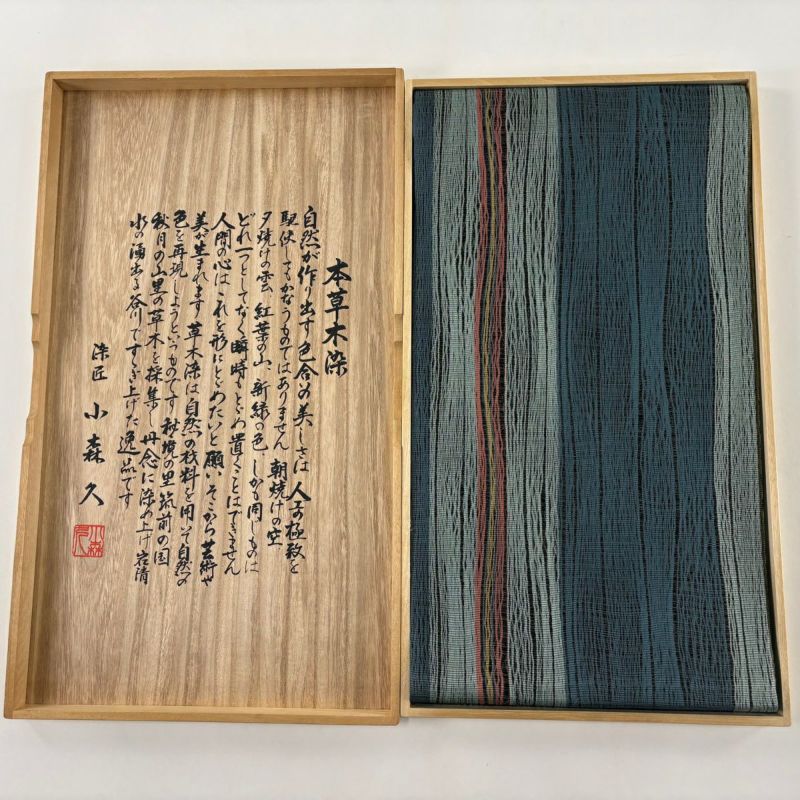 本草木染
自然が作り出す色合の美しさは 人工の極致を
駆使してもかなうものではありません 朝焼けの空
夕焼けの雲 紅葉の山、新緑の色、しかも同じものは
どれ一つとしてなく瞬時もとどめ置くことはできません
人間の心はこれを形にとどめたいと願い、そこから芸術や
美が生まれます 草木染は自然の材料を用いて自然の
色を再現しようというものです 秘境の里筑前の国
秋月の山里の草木を採集し丹念に染め上げ岩清
水の湧出る谷川ですすぎ上げた逸品です
染匠 小森久
小森久